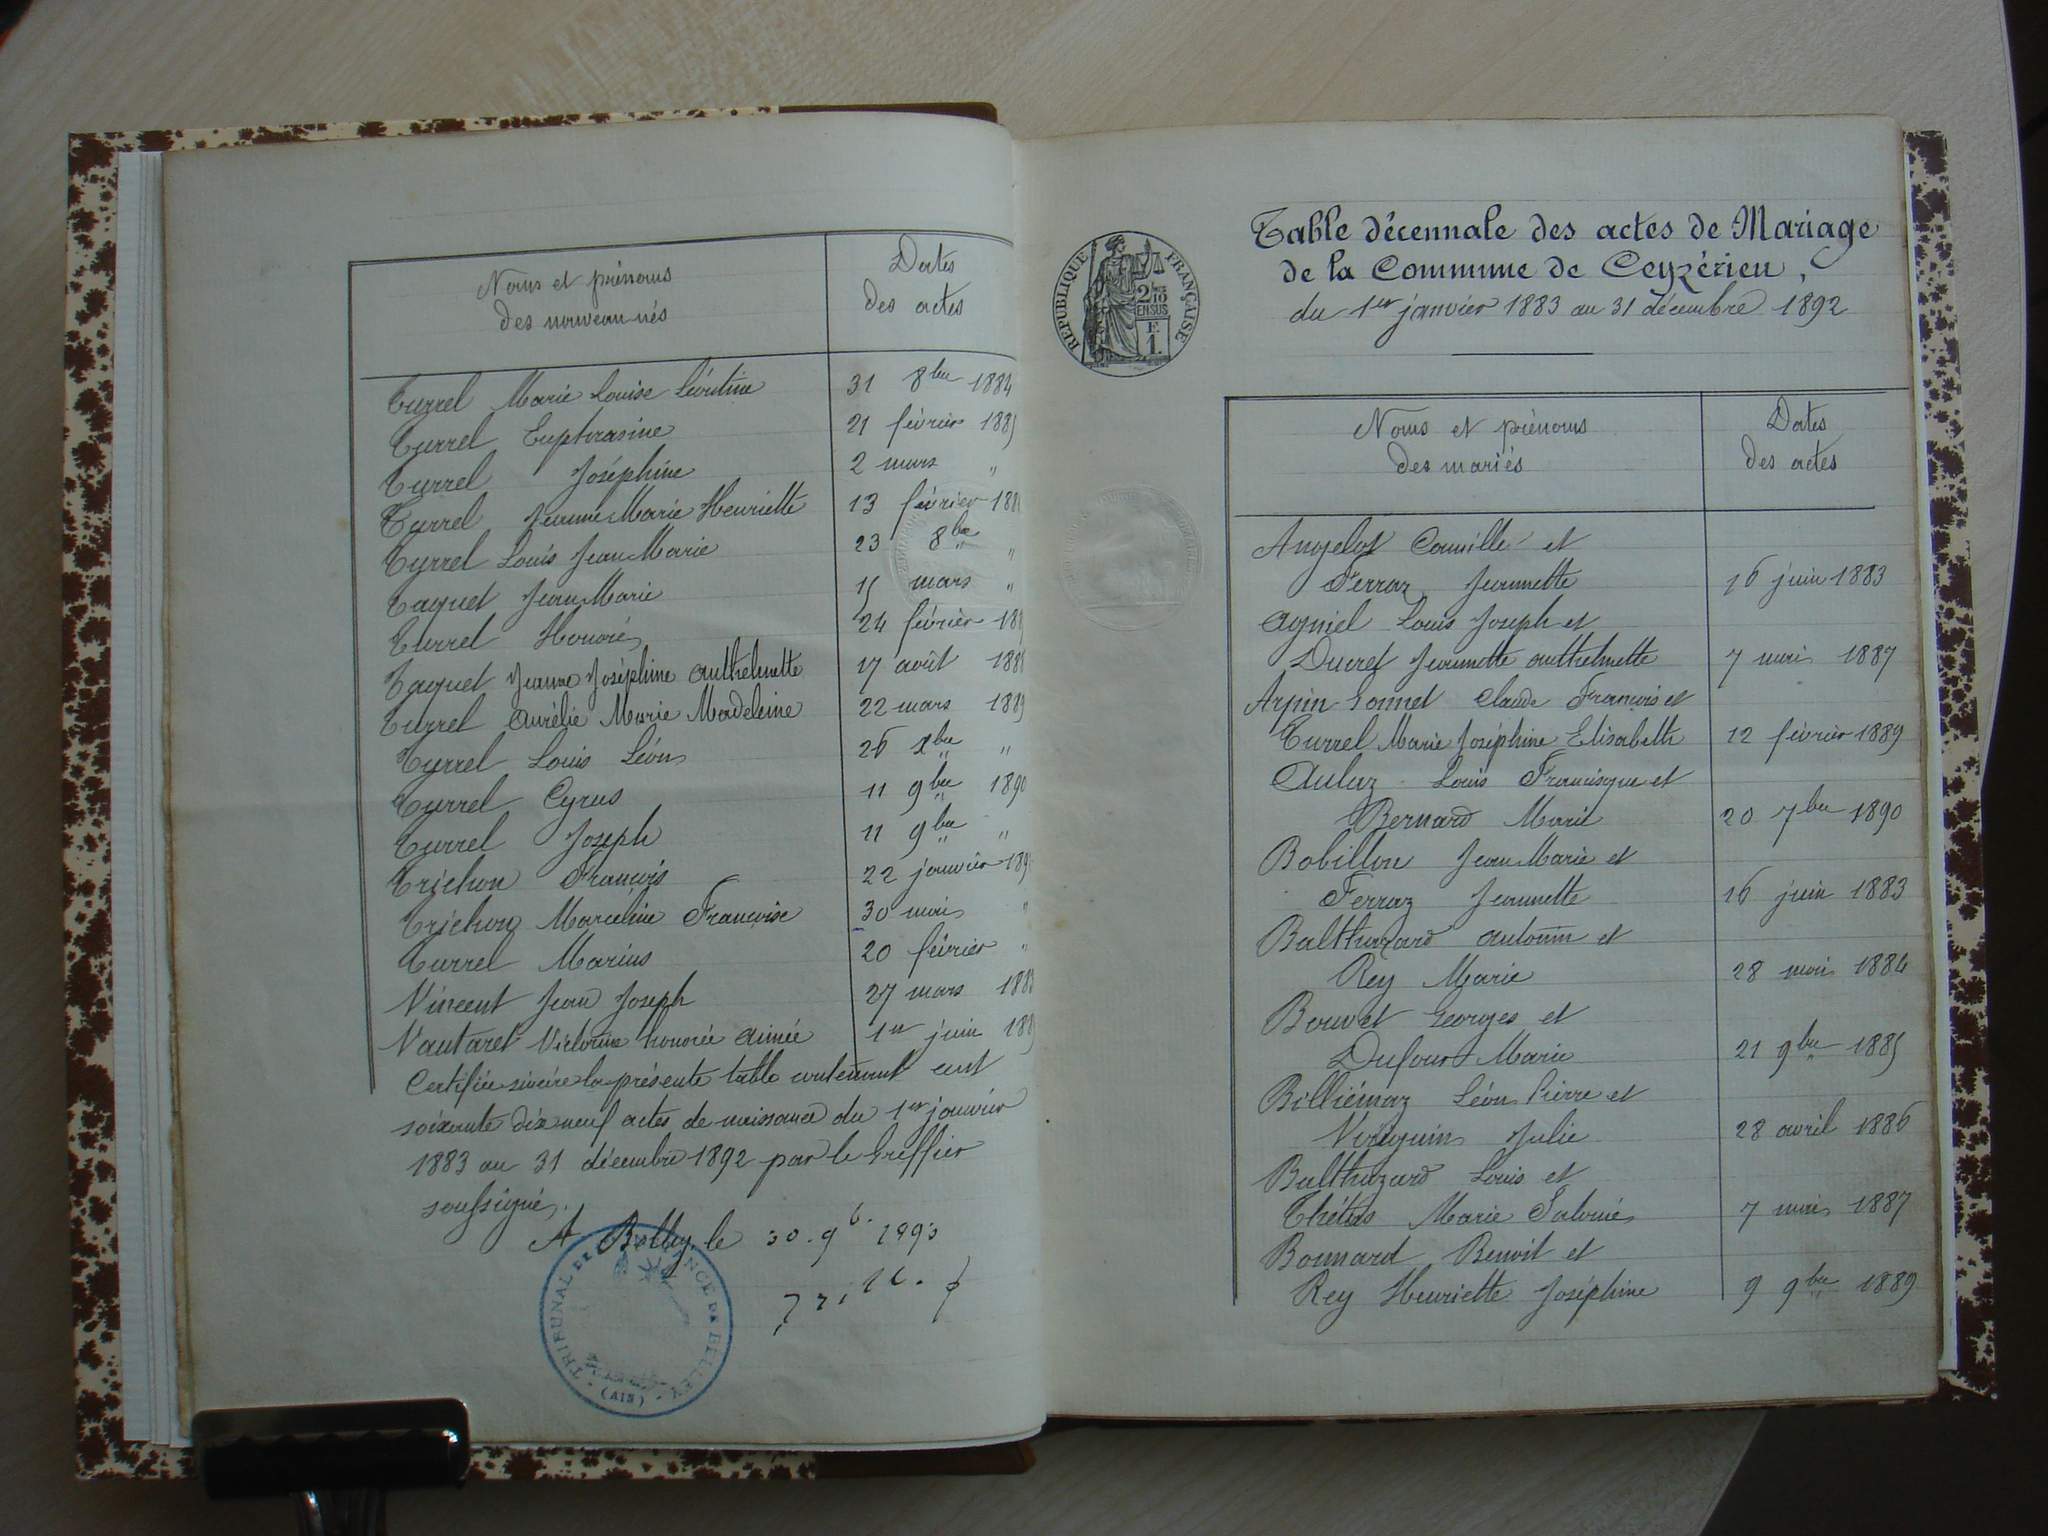 Noms et prénoms
des nouveau nés
Dates
des actes
Turrel Marie Louise Léontine 31 8bre 1884
Turrel Euphrasine 21 février 1885
Turrel Joséphine 2 mars "
Turrel Jeanne Marie Henriette 13 février
Turrel Louis Jean Marie 23 8bre "
Taquet Jean Marie 15 mars "
Turrel Honoré 24 février
Taquet Jeanne Joséphine Anthelmette 17 août
Turrel Aurélie Marie Madeleine 22 mars 1889
Turrel Louis Léon 26 Xbre "
Turrel Cyrus 11 9bre 1890
Turrel Joseph 11 9bre "
Trichon François 22 janvier
Trichon Marceline Françoise 30 mai "
Turrel Marius 20 février "
Vincent Jean Joseph 27 mars 1883
Vautaret Victorine honorée Aimée 1er juin
Certifiée sincère la présente table contenant cent
soixante dix neuf actes de naissance du 1er janvier
1883 au 31 décembre 1892 par le Greffier
soussigné.
A Belley, le 30. 9b. 1893
TRIBUNAL DE INSTANCE DE BELLEY
(AIN)
Table décennale des actes de Mariage
de la Commune de Ceyzérieu,
du 1er janvier 1883 au 31 décembre 1892
REPUBLIQUE FRANÇAISE
2/10
EN SUS
Noms et prénoms
des mariés
Dates
des actes
Angelot Camille et
Ferraz Jeannette 16 juin 1883
Agniel Louis Joseph et
Ducret Jeannette Anthelmette 7 mai 1887
Arpin-Gonnet Claude François et
Turrel Marie Joséphine Elisabeth 12 février 1889
Aulaz Louis Francisque et
Bernard Marie 20 7bre 1890
Bobillon Jean Marie et
Ferraz Jeannette 16 juin 1883
Balthazard Antonin et
Rey Marie 28 mai 1884
Bouvet Georges et
Dufour Marie 21 9bre 1885
Billiémaz Léon Pierre et
Vireguin Julie 28 avril 1886
Balthazard Louis et
Marie Salomé 7 mai 1887
Bonnard Benoit et
Rey Henriette Joséphine 9 9bre 1889